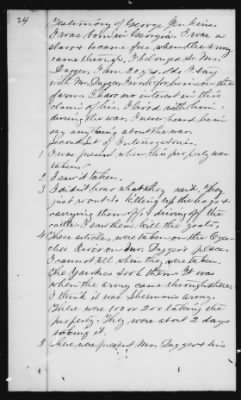 24
Testimony of George Jenkins.
I was born in Georgia. I was a
slave & became free when the army
came through. I belonged to Mr.
Dugger. I am 20 yrs old. I stay
with Mr. Dugger & work for him on the
farm. I had no interest in this
claim of his. I lived with him
during the war. I never heard him
say anything about the war.
Second Set of Interrogatories.
1 I was present when his property was
taken.
2 I saw it taken.
3 I didn't hear what they said. They
just went to killing up the hogs &
carrying them off & driving off the
cattle. I saw them kill the goats.
4 These articles were taken on the Ogee-
chee River on Mr Dugger's place.
I cannot tell when they were taken.
The Yankees took them. It was
when the army came through there.
I think it was Sherman's army.
There were 100 or 200 taking the
property. They were about 2 days
taking it.
5 There were present Mrs Dugger & his